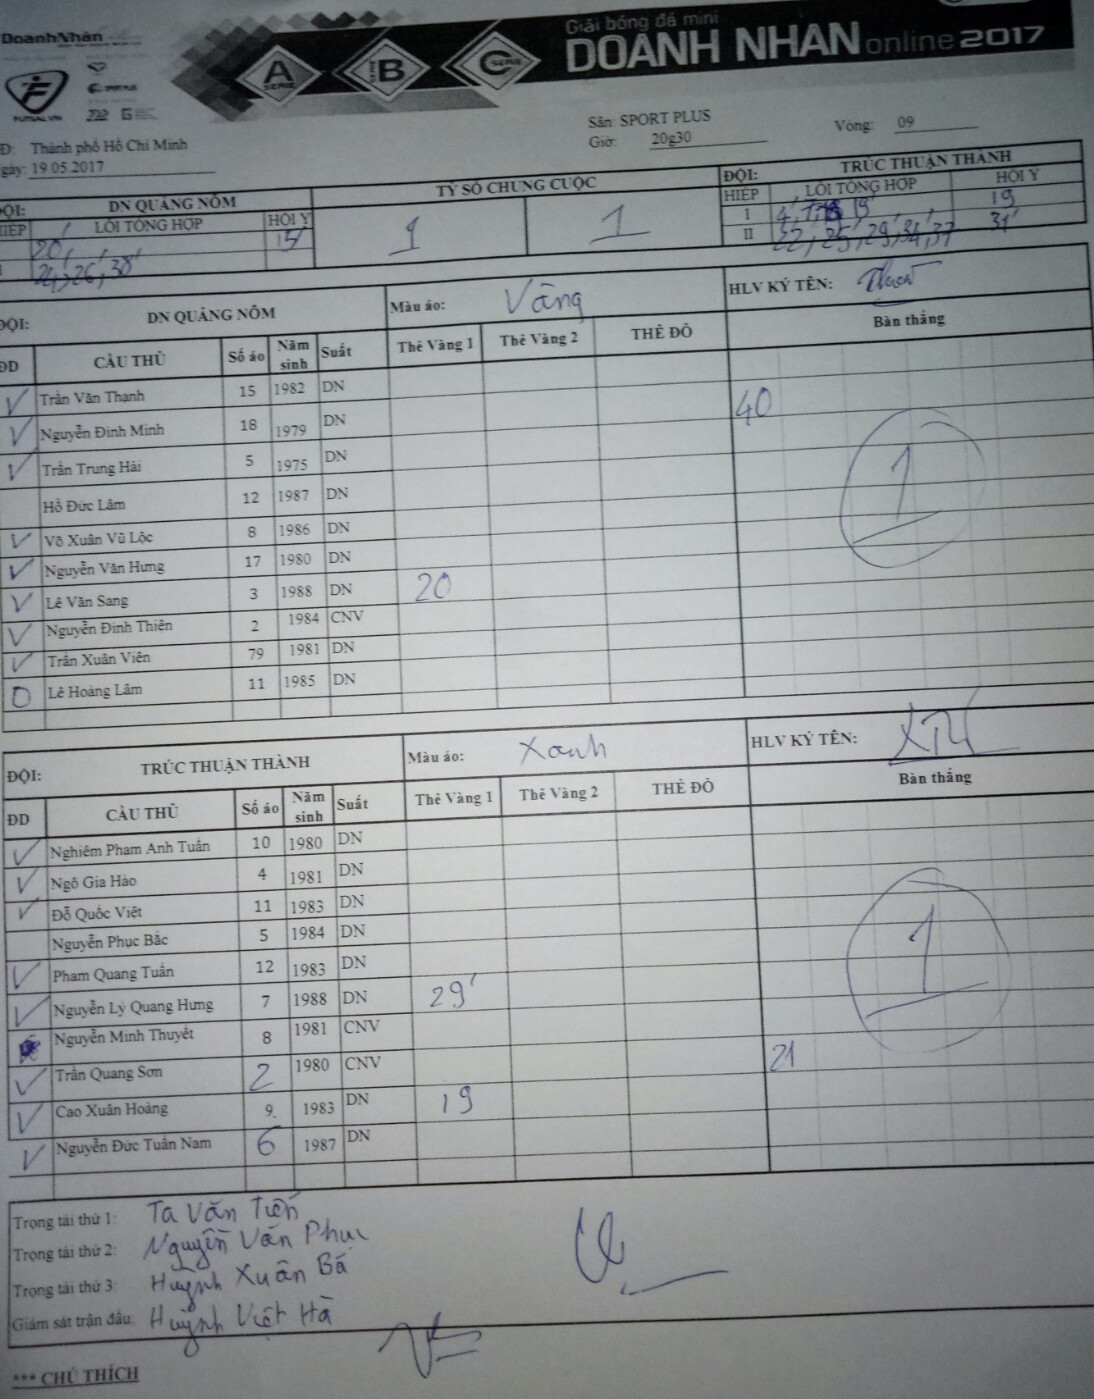 DoanhNhân
FUTSAL.VN
A SERIE B SERIE C SERIE
Giải bóng đá mini
DOANH NHAN online 2017
Đ: Thành phố Hồ Chí Minh
gày: 19.05.2017
Sân: SPORT PLUS
Giờ: 20g30
Vòng: 09
ĐỘI: DN QUẢNG NÔM
TỶ SỐ CHUNG CUỘC
ĐỘI: TRÚC THUẬN THÀNH
HIỆP LỖI TỔNG HỢP HỘI Ý
HIỆP LỖI TỔNG HỢP HỘI Ý
20' 15'
1 1
I 4', 19' 19
24, 26, 38'
II 22, 25, 29, 34, 37 31'
ĐỘI: DN QUẢNG NÔM Màu áo: Vàng HLV KÝ TÊN:
ĐD CẦU THỦ Số áo Năm sinh Suất Thẻ Vàng 1 Thẻ Vàng 2 THẺ ĐỎ Bàn thắng
V Trần Văn Thạnh 15 1982 DN
V Nguyễn Đình Minh 18 1979 DN 40
V Trần Trung Hải 5 1975 DN
Hồ Đức Lâm 12 1987 DN
V Võ Xuân Vũ Lộc 8 1986 DN
V Nguyễn Văn Hưng 17 1980 DN
V Lê Văn Sang 3 1988 DN 20
V Nguyễn Đình Thiên 2 1984 CNV
V Trần Xuân Viên 79 1981 DN
0 Lê Hoàng Lâm 11 1985 DN
1
ĐỘI: TRÚC THUẬN THÀNH Màu áo: Xanh HLV KÝ TÊN:
ĐD CẦU THỦ Số áo Năm sinh Suất Thẻ Vàng 1 Thẻ Vàng 2 THẺ ĐỎ Bàn thắng
V Nghiêm Phạm Anh Tuấn 10 1980 DN
V Ngô Gia Hào 4 1981 DN
V Đỗ Quốc Việt 11 1983 DN
Nguyễn Phục Bắc 5 1984 DN
V Phạm Quang Tuấn 12 1983 DN
V Nguyễn Lý Quang Hưng 7 1988 DN 29'
Nguyễn Minh Thuyết 8 1981 CNV
V Trần Quang Sơn 2 1980 CNV 21
V Cao Xuân Hoàng 9 1983 DN 19
V Nguyễn Đức Tuấn Nam 6 1987 DN
1
Trọng tài thứ 1: Tạ Văn Tiến
Trọng tài thứ 2: Nguyễn Văn Phục
Trọng tài thứ 3: Huỳnh Xuân Bá
Giám sát trận đấu: Huỳnh Việt Hà
*** CHÚ THÍCH